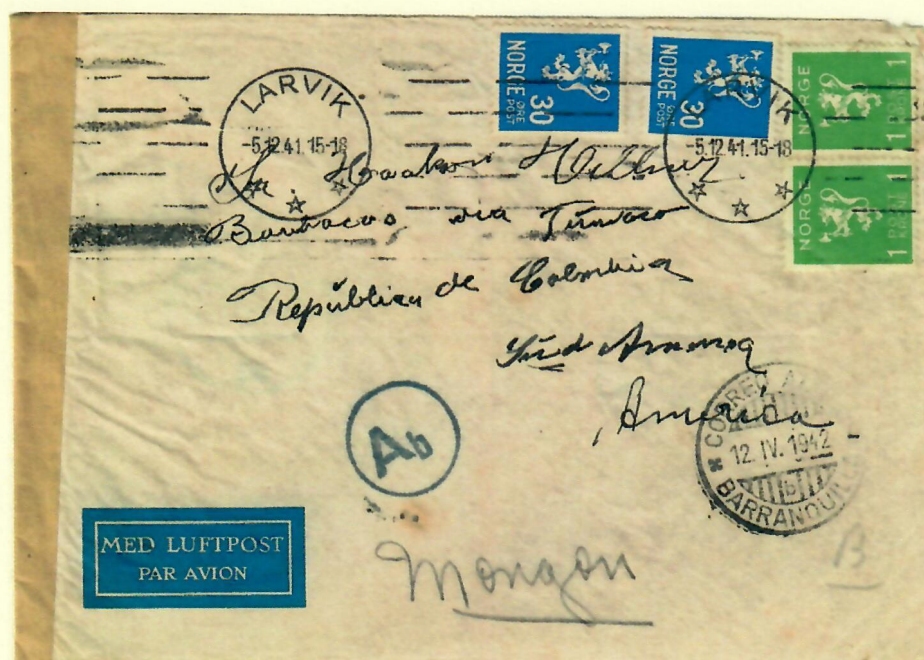 LARVIK
-5.12.41.15-18
NORGE
30
ØRE
POST
NORGE
30
ØRE
POST
LARVIK
-5.12.41.15-18
NORGE
1
POST
KRONE
1
NORGE
1
POST
KRONE
1
Haakon
Barbacoas via Tumaco
República de Colombia
Süd America
America
CORREO
12. IV. 1942
b
BARRANQUIL
Ab
MED LUFTPOST
PAR AVION
Mongon
B